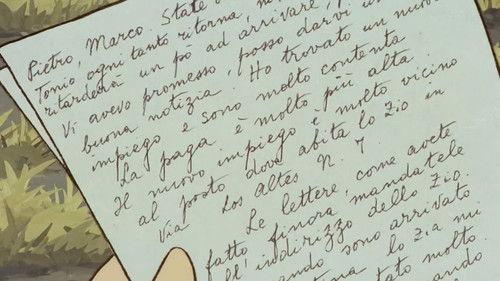 Pietro, Marco. State
Tonio ogni tanto ritorna,
ritarderà un pò ad arrivare,
Vi avevo promesso, posso darvi
buona notizia! Ho trovato un nuovo
impiego e sono molto contenta.
La paga è molto più alta.
Il nuovo impiego è molto vicino
al posto dove abita lo Zio in
Via Los Altes N. 7
Le lettere, come avete
fatto finora mandatele
all'indirizzo dello Zio.
sono arrivato
lo Zia mi
molto